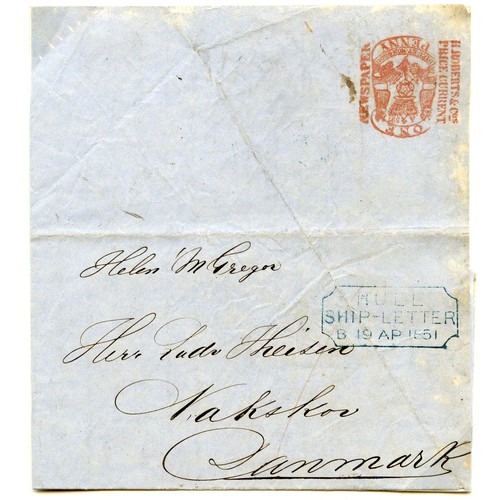 NEWSPAPER
ONE PENNY
H. ROBERTS & Cos
PRICE CURRENT
Helen McGregor
HULL
SHIP-LETTER
B 19 AP 1851
Herr Ludv Theisen
Nakskov
Danmark